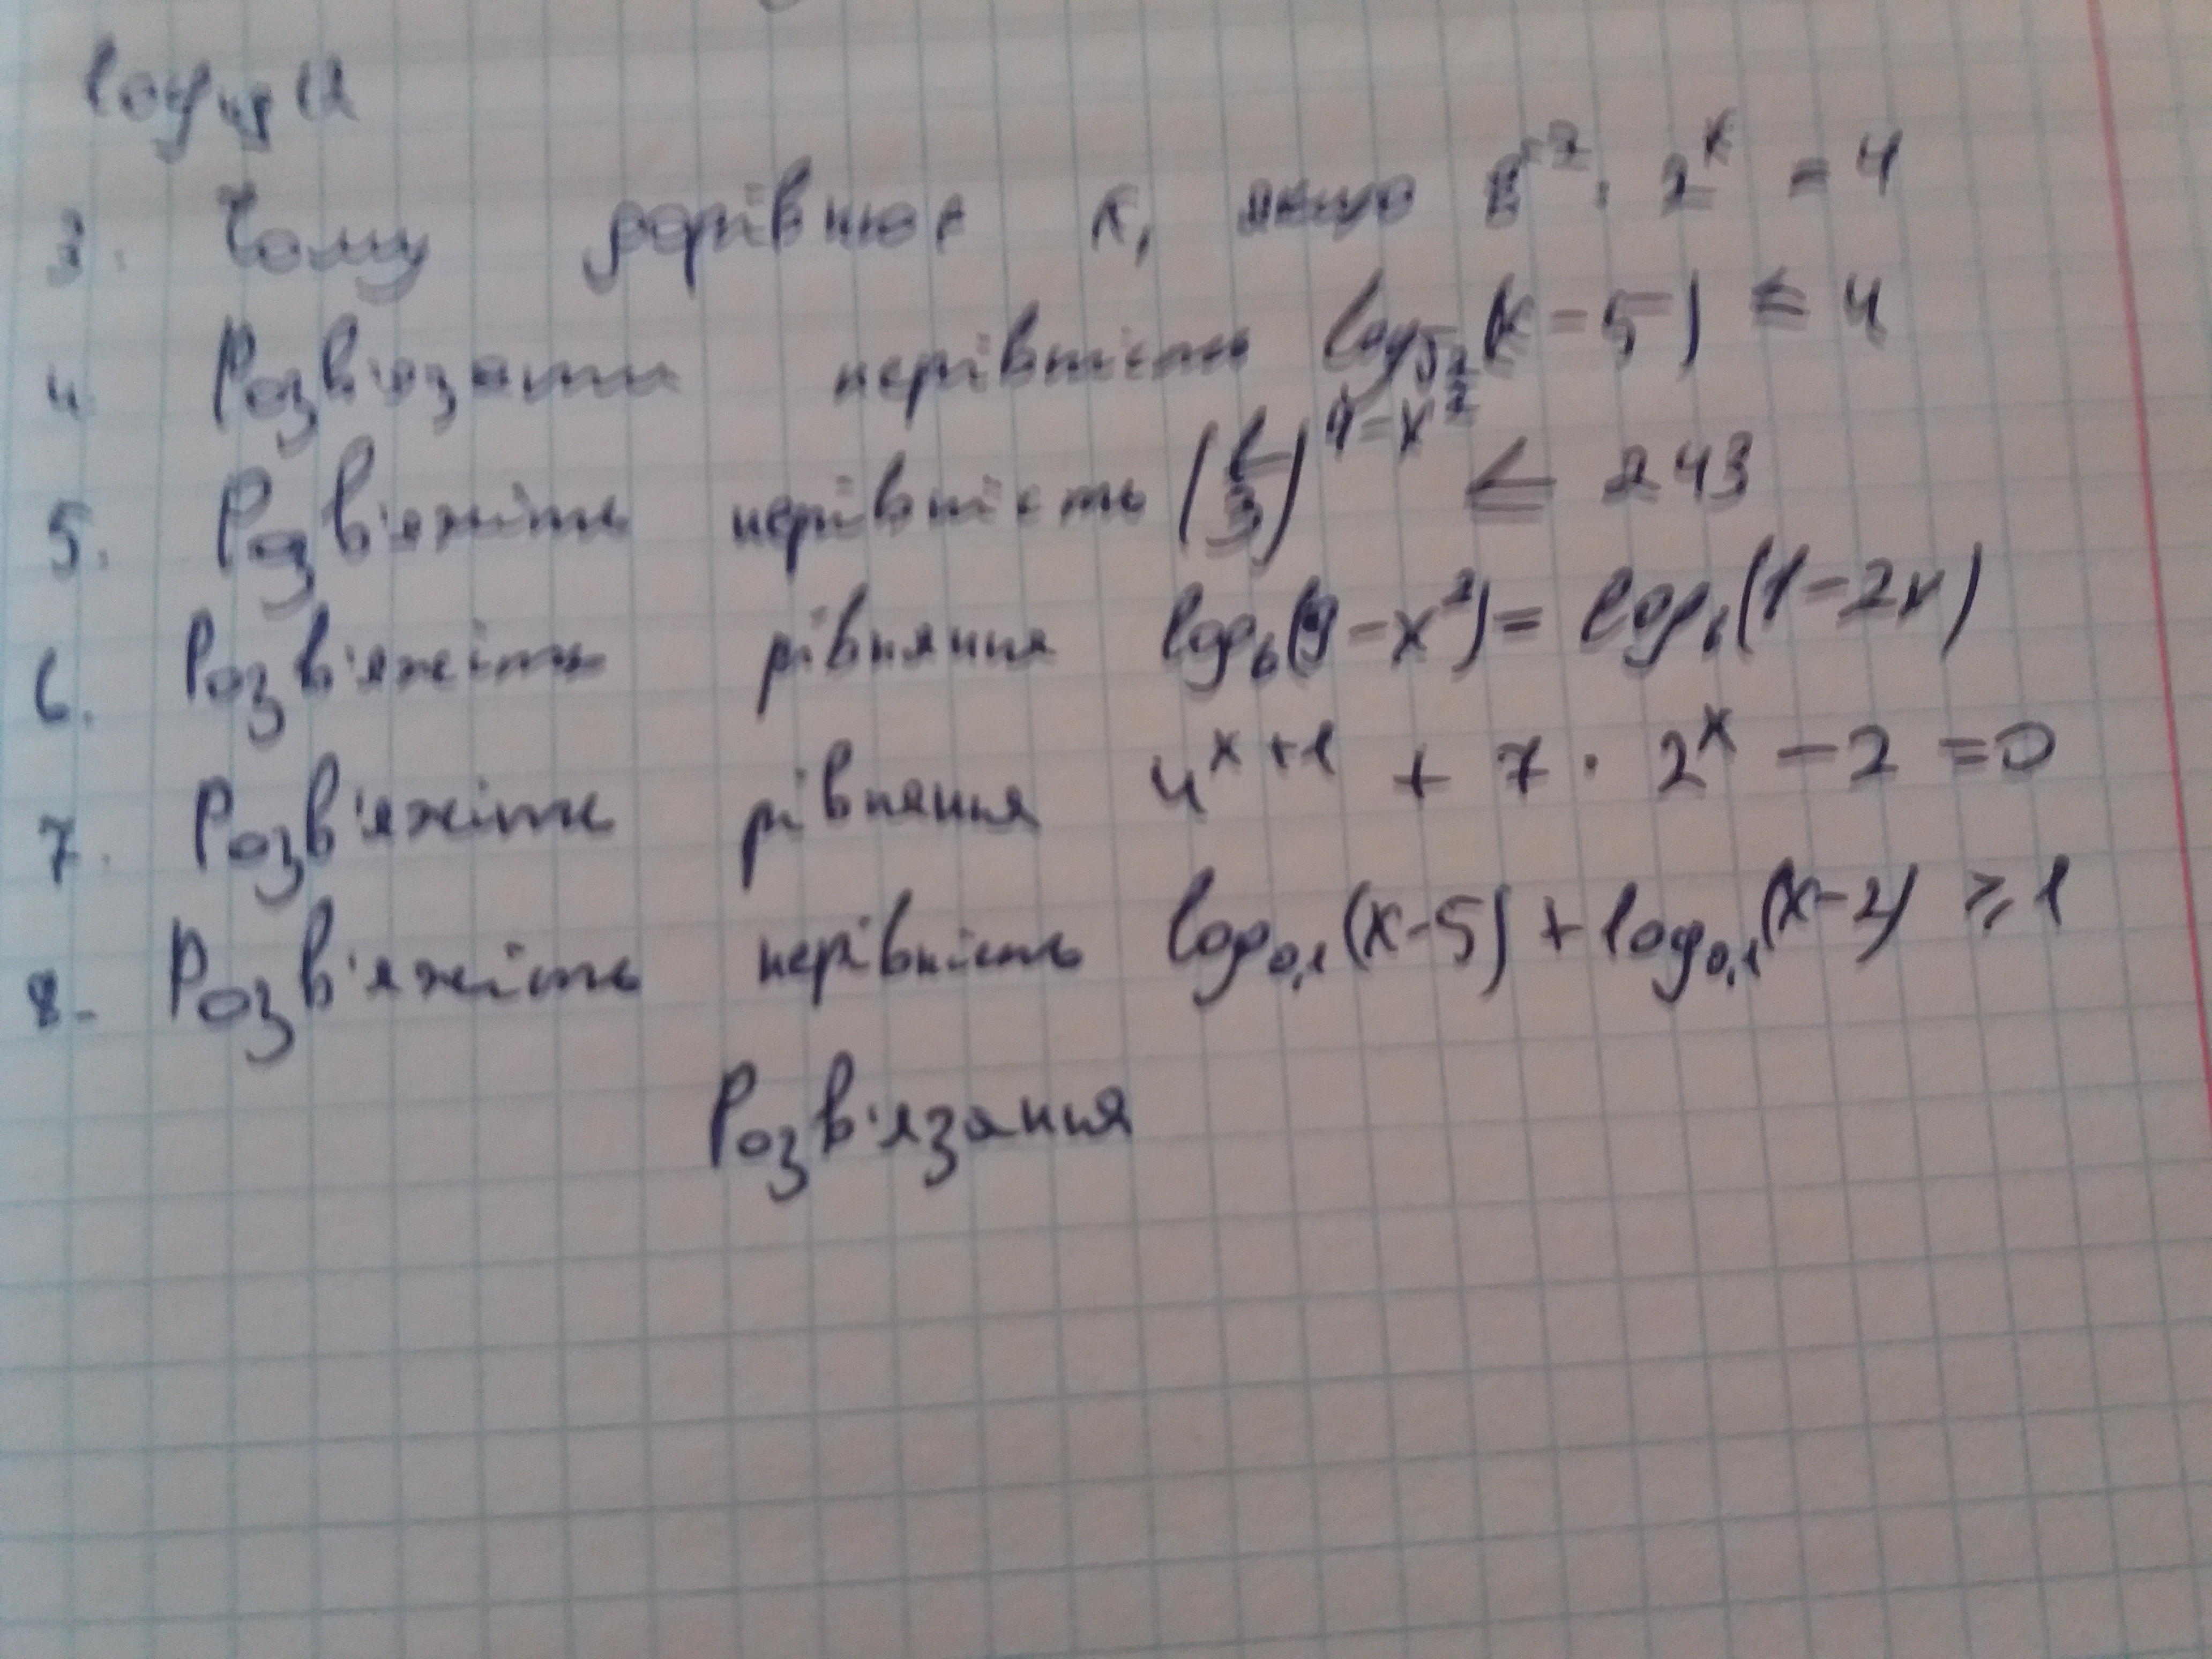 log₄₉ 12
3. Чому дорівнює x, якщо 8⁻² · 2ˣ = 4
4. Розв'язати нерівність (x - 5) ≤ 4
5. Розв'яжіть нерівність (1/3)^(4-x²) ≤ 243
6. Розв'яжіть рівняння log₆(9-x²) = log₆(1-2x)
7. Розв'яжіть рівняння 4ˣ⁺¹ + 7 · 2ˣ - 2 = 0
8. Розв'яжіть нерівність log₀,₁(x-5) + log₀,₁(x-2) ≥ 1
Розв'язання